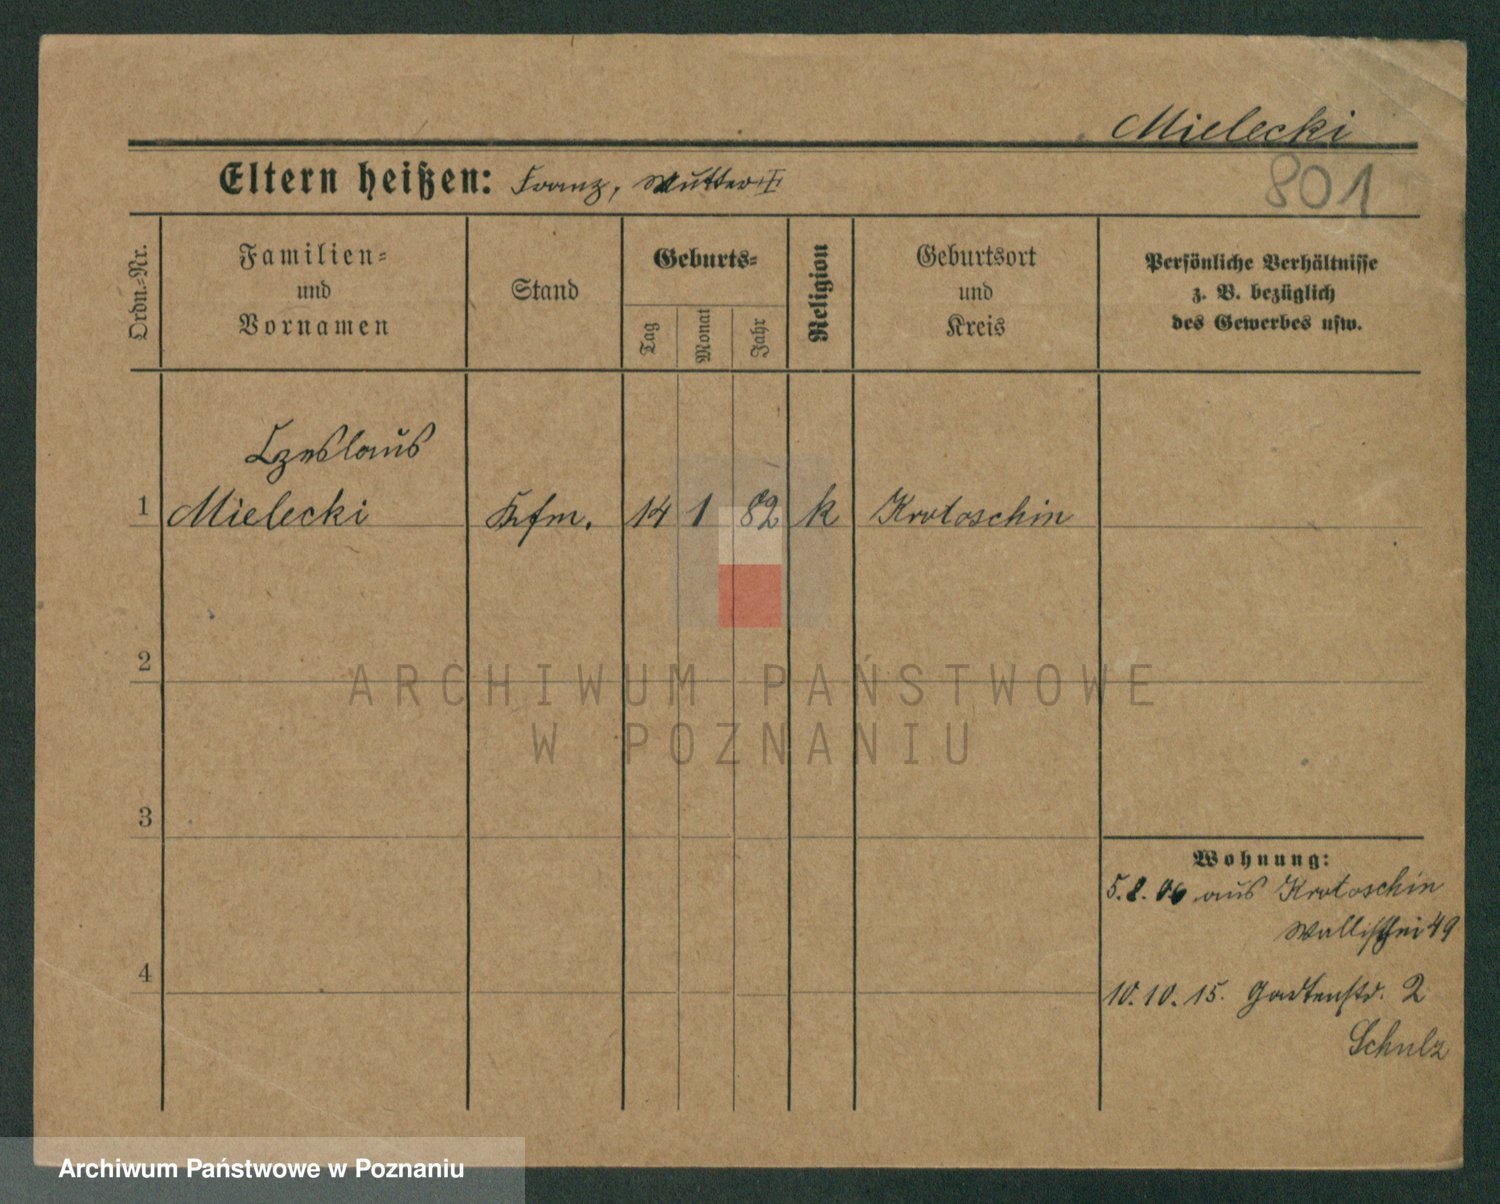 Mielecki
801
Eltern heißen: Franz, Mutter †
Ordn.-Nr.
Familien-
und
Vornamen
Stand
Geburts-
Tag
Monat
Jahr
Religion
Geburtsort
und
Kreis
Persönliche Verhältnisse
z. B. bezüglich
des Gewerbes usw.
Czeslaus
1 Mielecki Kfm. 14 1 82 k Krotoschin
2
3
4
Wohnung:
5.8.06 aus Krotoschin
Wallischei 49
10.10.15. Gartenstr. 2
Schulz
ARCHIWUM PAŃSTWOWE
W POZNANIU
Archiwum Państwowe w Poznaniu